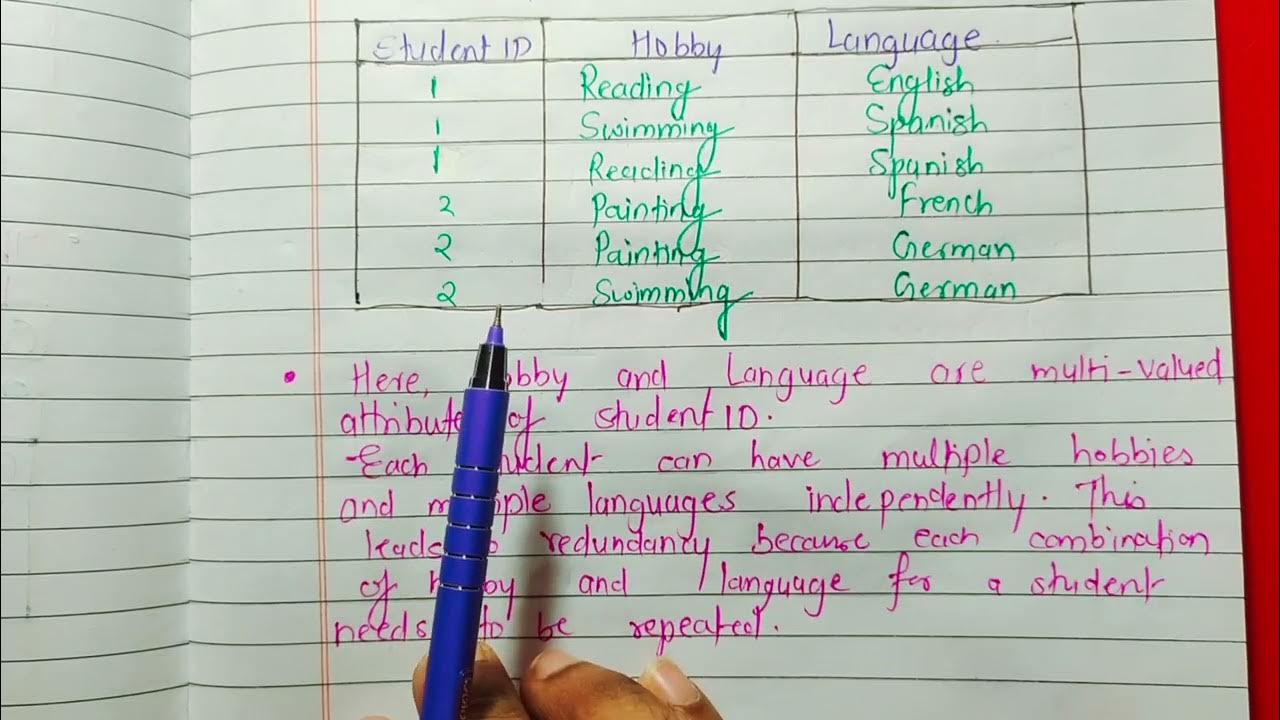 Student ID Hobby Language
1 Reading English
1 Swimming Spanish
1 Reading Spanish
2 Painting French
2 Painting German
2 Swimming German
• Here, and Language are multi-valued
of student ID.
Each can have multiple hobbies
and languages independently. This
redundanzy because each combination
of and language for a student
needs to be repeated.